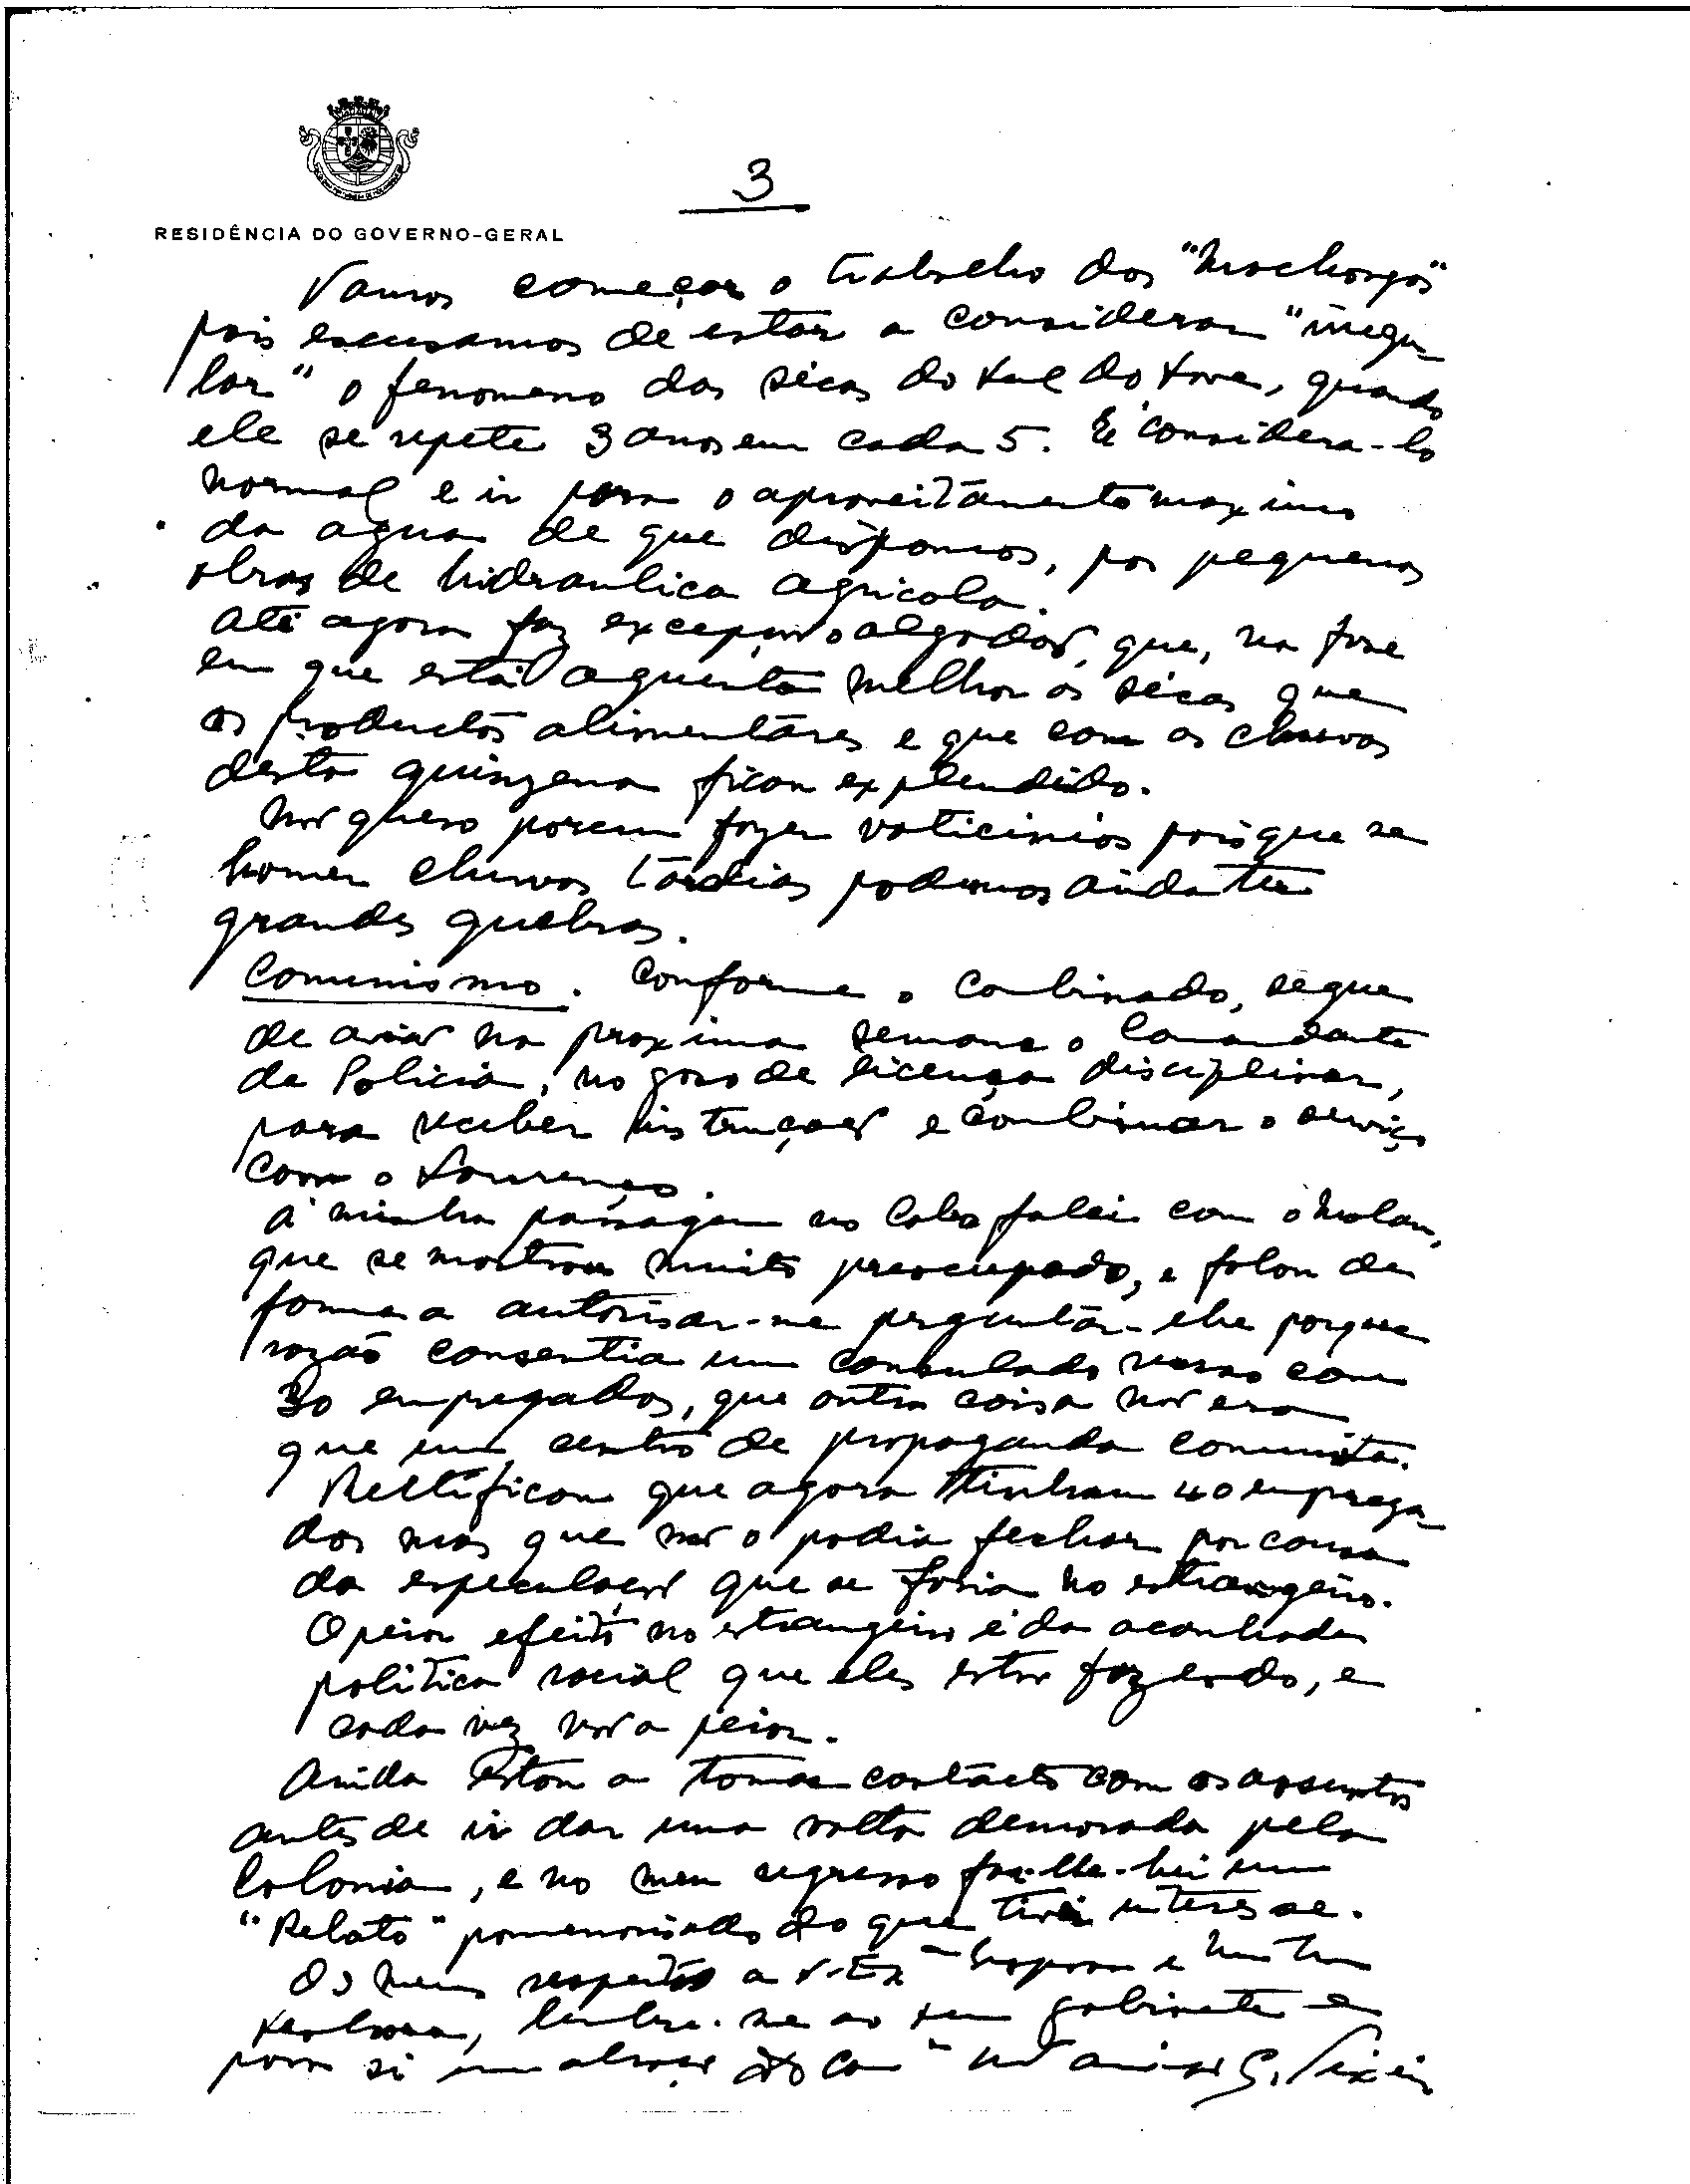 3
RESIDÊNCIA DO GOVERNO-GERAL
Vamos começar o trabalho dos "Machongos"
pois escusamos de estar a considerar "irregu-
lar" o fenomeno das sêcas do Sul do Save, quando
ele se repete 3 anos em cada 5. É considera-lo
normal e ir para o aproveitamento maximo
da agua de que dispomos, por pequenas
obras de hidraulica agricola.
Até agora faz excepção o algodão, que, na fase
em que está aguenta melhor as sêcas que
os productos alimentares e que com as chuvas
desta quinzena ficou explendido.
Não quero porem fazer vaticinios pois que se
houver chuvas tardias podemos ainda ter
grandes quebras.
Comunismo. Conforme o combinado, segue
de avião na proxima semana o Comandante
da Policia, no goso de licença disciplinar,
para receber instruções e combinar o serviço
com o Lourenço.
Á minha passagem no Cabo falei com o Malan,
que se mostrou muito preocupado, e falou de
forma a autorisar-me perguntar-lhe porque
razão consentia um consulado russo com
30 empregados, que outra coisa não era
que um centro de propaganda comunista.
Rectificou que agora tinham 40 emprega-
dos mas que não o podia fechar por causa
da especulação que se faria no estrangeiro.
O peior efeito no estrangeiro é da acanhada
politica racial que eles estão fazendo, e
cada vez vai a peior.
Ainda estou a tomar contacto com os assuntos
antes de ir dar uma volta demorada pela
Colonia, e no meu regresso far-lhe-hei um
"Relato" pormenorisado do que tiver interesse.
Os meus respeitos a V. Exª e minha
Senhora, lembre-me ao seu gabinete e
para si um abraço do amigo G. Teixeira